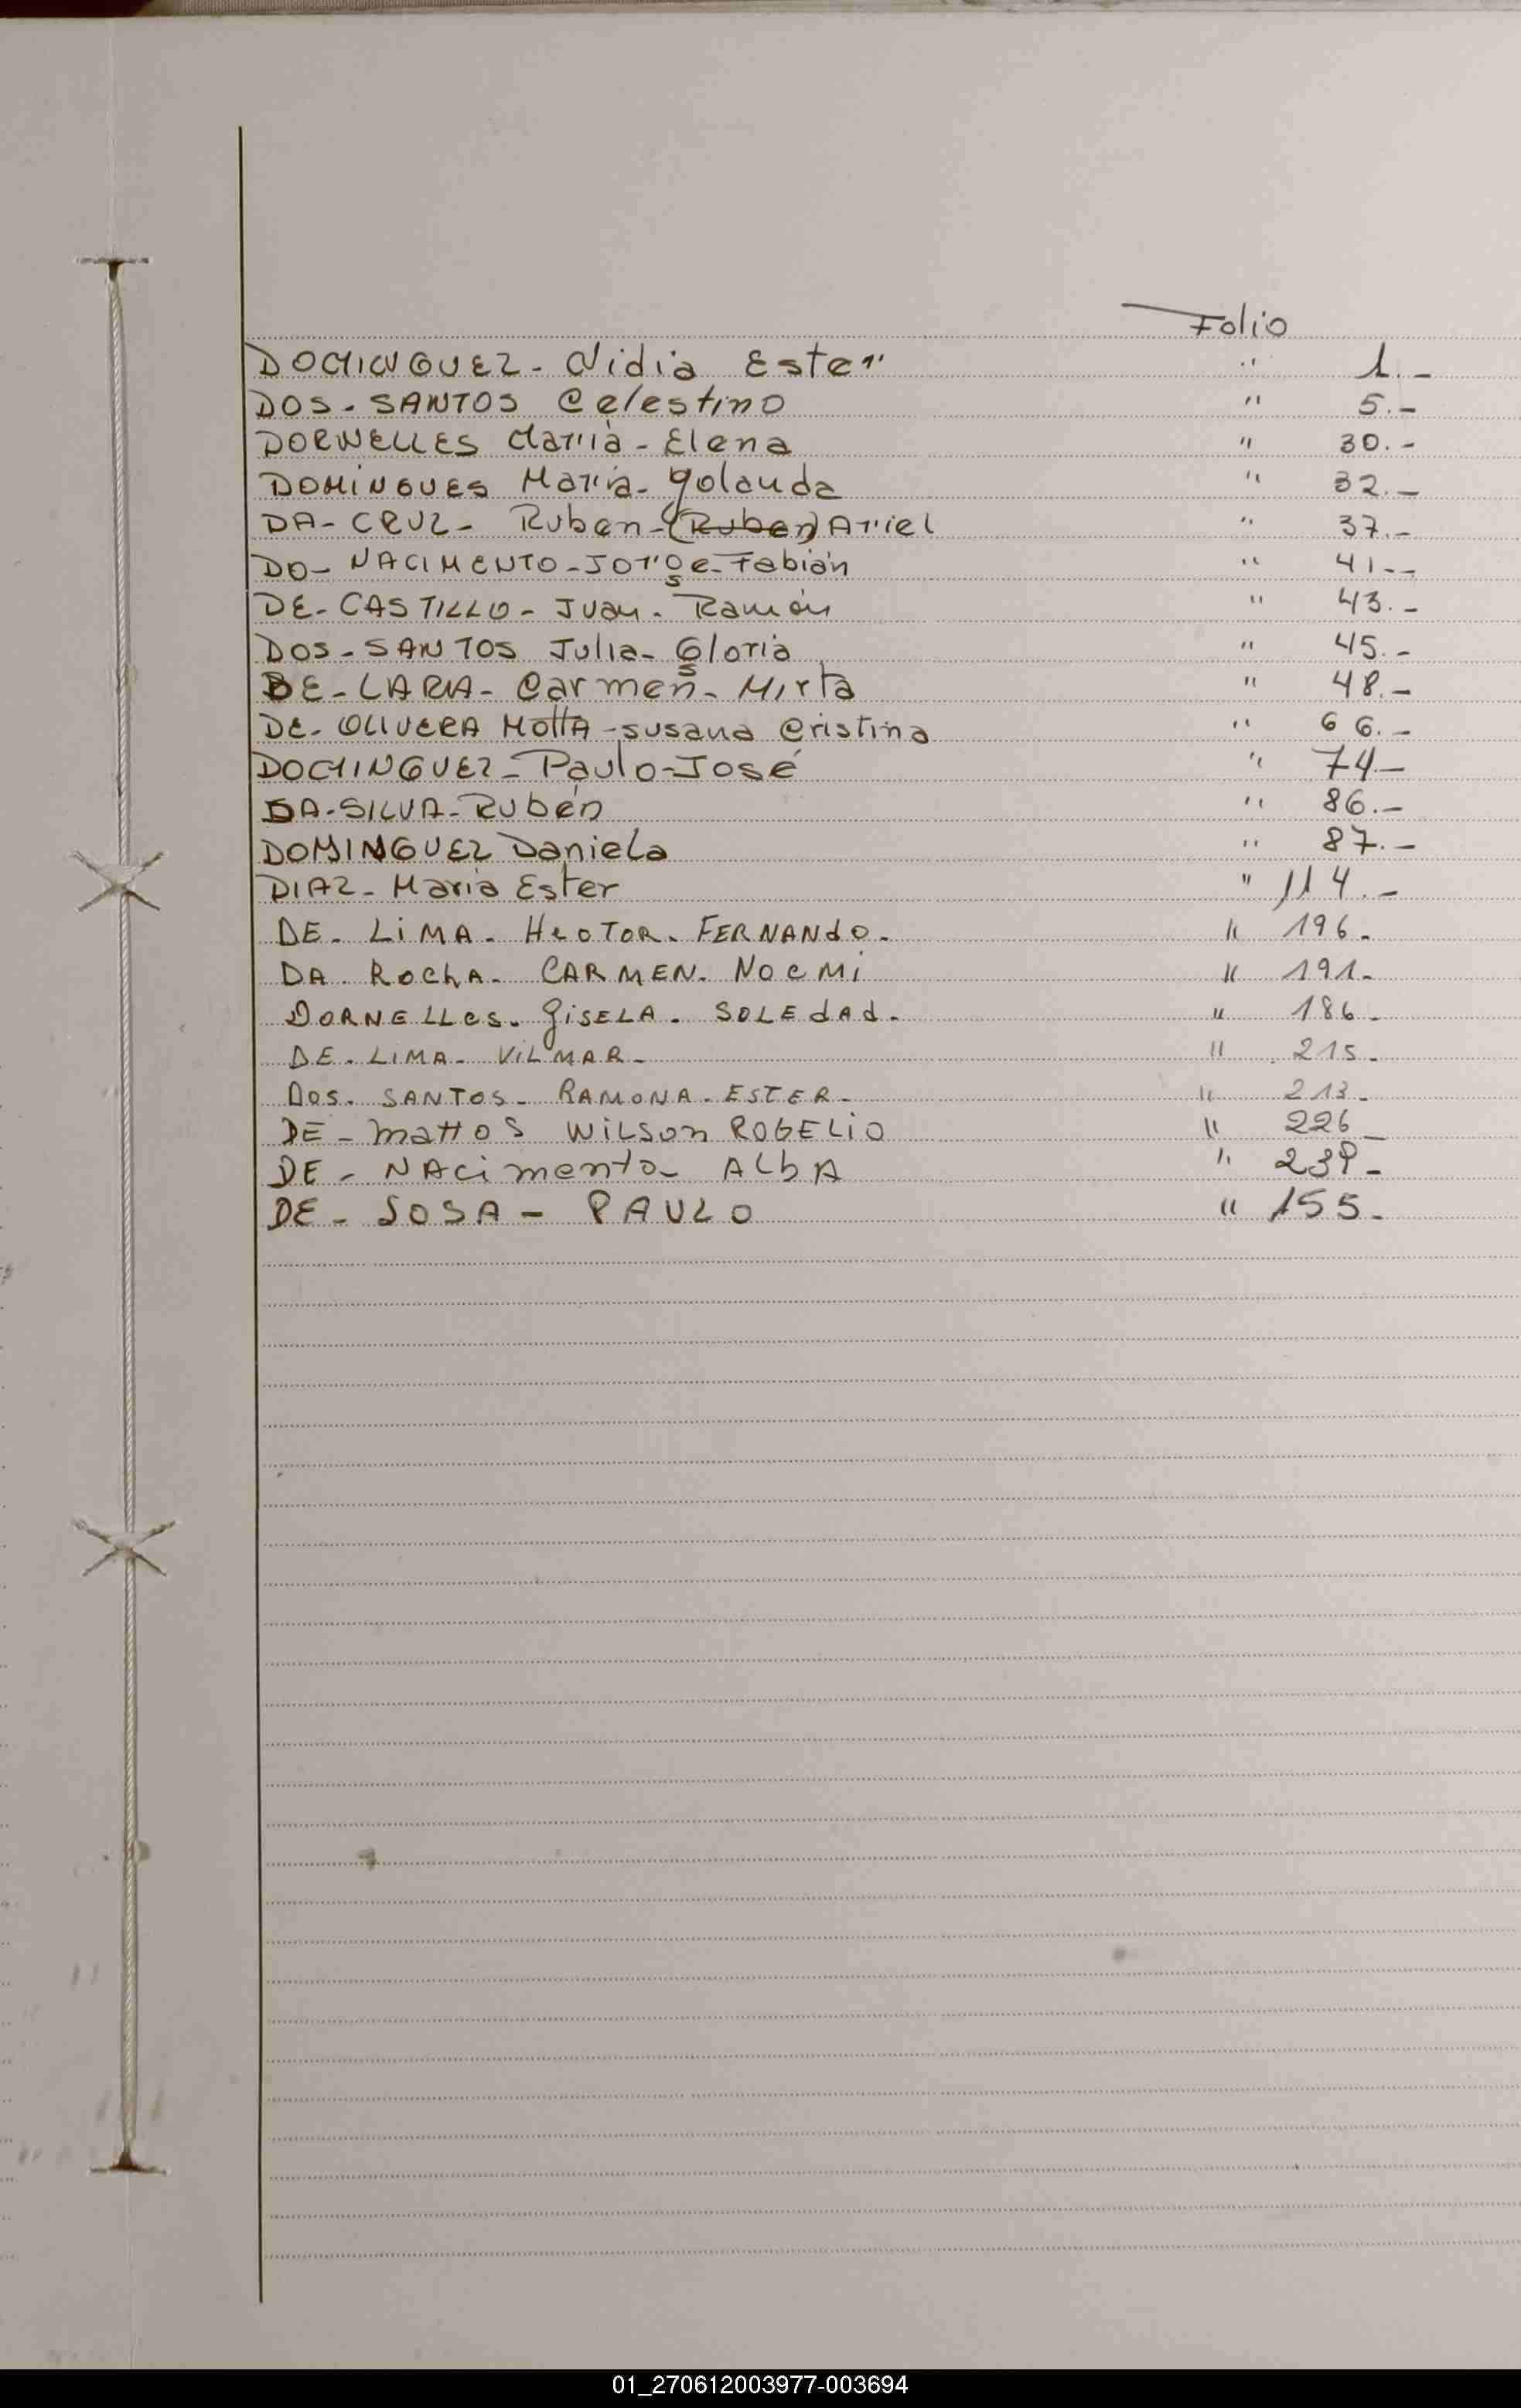 Folio
DOMINGUEZ - Nidia Ester " 1.-
DOS - SANTOS Celestino " 5.-
DORNELLES María - Elena " 30.-
DOMINGUES María - Yolanda " 32.-
DA - CRUZ - Ruben - (Ruben) Ariel " 37.-
DO - NACIMENTO - Jorge - Fabián " 41.-
DE - CASTILLO - Juan - Ramón " 43.-
DOS - SANTOS Julia - Gloria " 45.-
DE - LARA - Carmen - Mirta " 48.-
DE - OLIVERA MOTTA - Susana Cristina " 66.-
DOMINGUEZ - Paulo - José " 74.-
DA - SILVA - Rubén " 86.-
DOMINGUEZ Daniela " 87.-
DIAZ - Maria Ester " 114.-
DE - LiMA - HecTOR - FERNANdO - " 196 -
DA - RochA - CARMEN - NOeMi " 191 -
DORNELLes - GiSELA - SOLEdAd - " 186 -
DE - LiMA - ViLMAR - " 215 -
Dos - SANTOS - RAMONA - ESTER - " 213 -
DE - mattos WiLSon ROGELiO " 226 -
DE - NAcimento - ALbA " 239 -
DE - SOSA - PAULO " 155 -
01_270612003977-003694